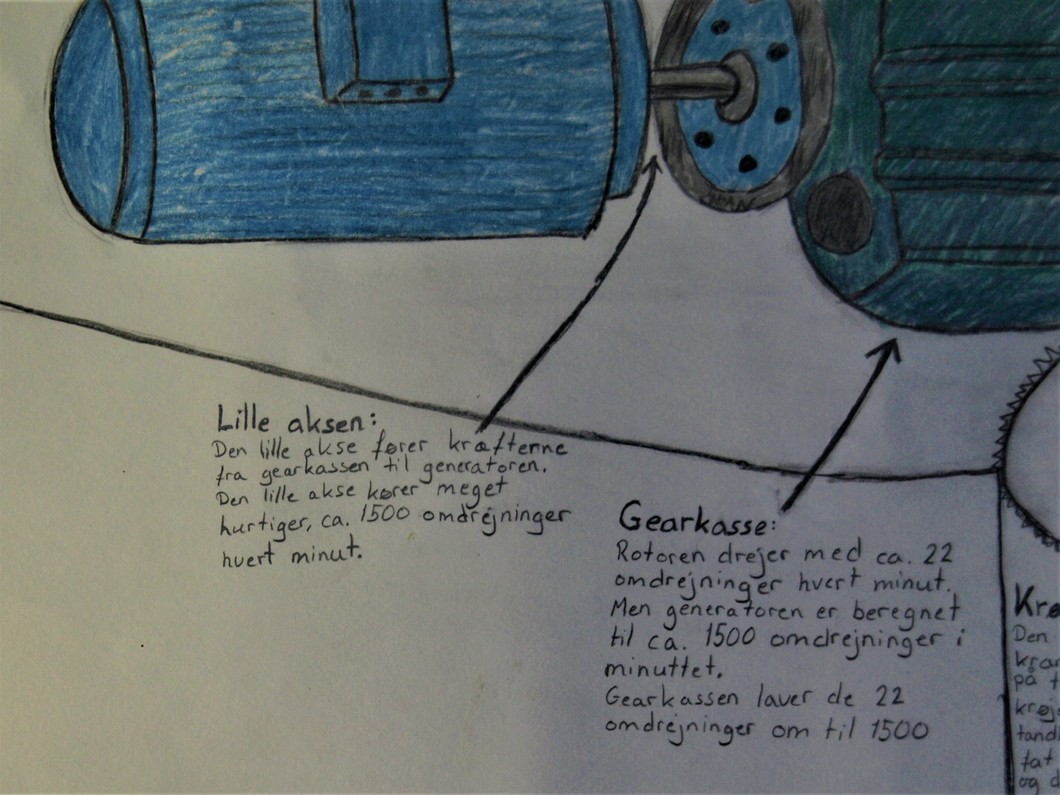 Lille aksen:
Den lille akse fører kræfterne
fra gearkassen til generatoren.
Den lille akse kører meget
hurtiger, ca. 1500 omdrejninger
hvert minut.
Gearkasse:
Rotoren drejer med ca. 22
omdrejninger hvert minut.
Men generatoren er beregnet
til ca. 1500 omdrejninger i
minuttet.
Gearkassen laver de 22
omdrejninger om til 1500
Den
på
og